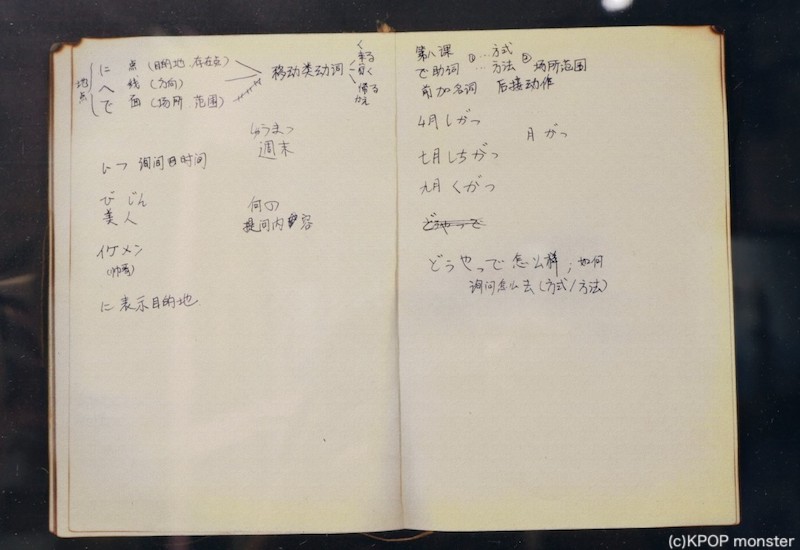 に 点(目的地、存在点)
へ 线(方向)
で 面(场所、范围)
地点
移动类动词
く
来る
行く
帰る
かえ
しゅうまつ
週末
いつ 询问日时间
びじん
美人
何の
提问内容
イケメン
に 表示目的地.
第八课 ①…方式
で助词 …方法 ② 场所范围
前加名词 后接动作
4月しがつ
月がつ
七月しちがつ
九月くがつ
どうやって
どうやって怎么样;如何
询问怎么去(方式/方法)
(c)KPOP monster